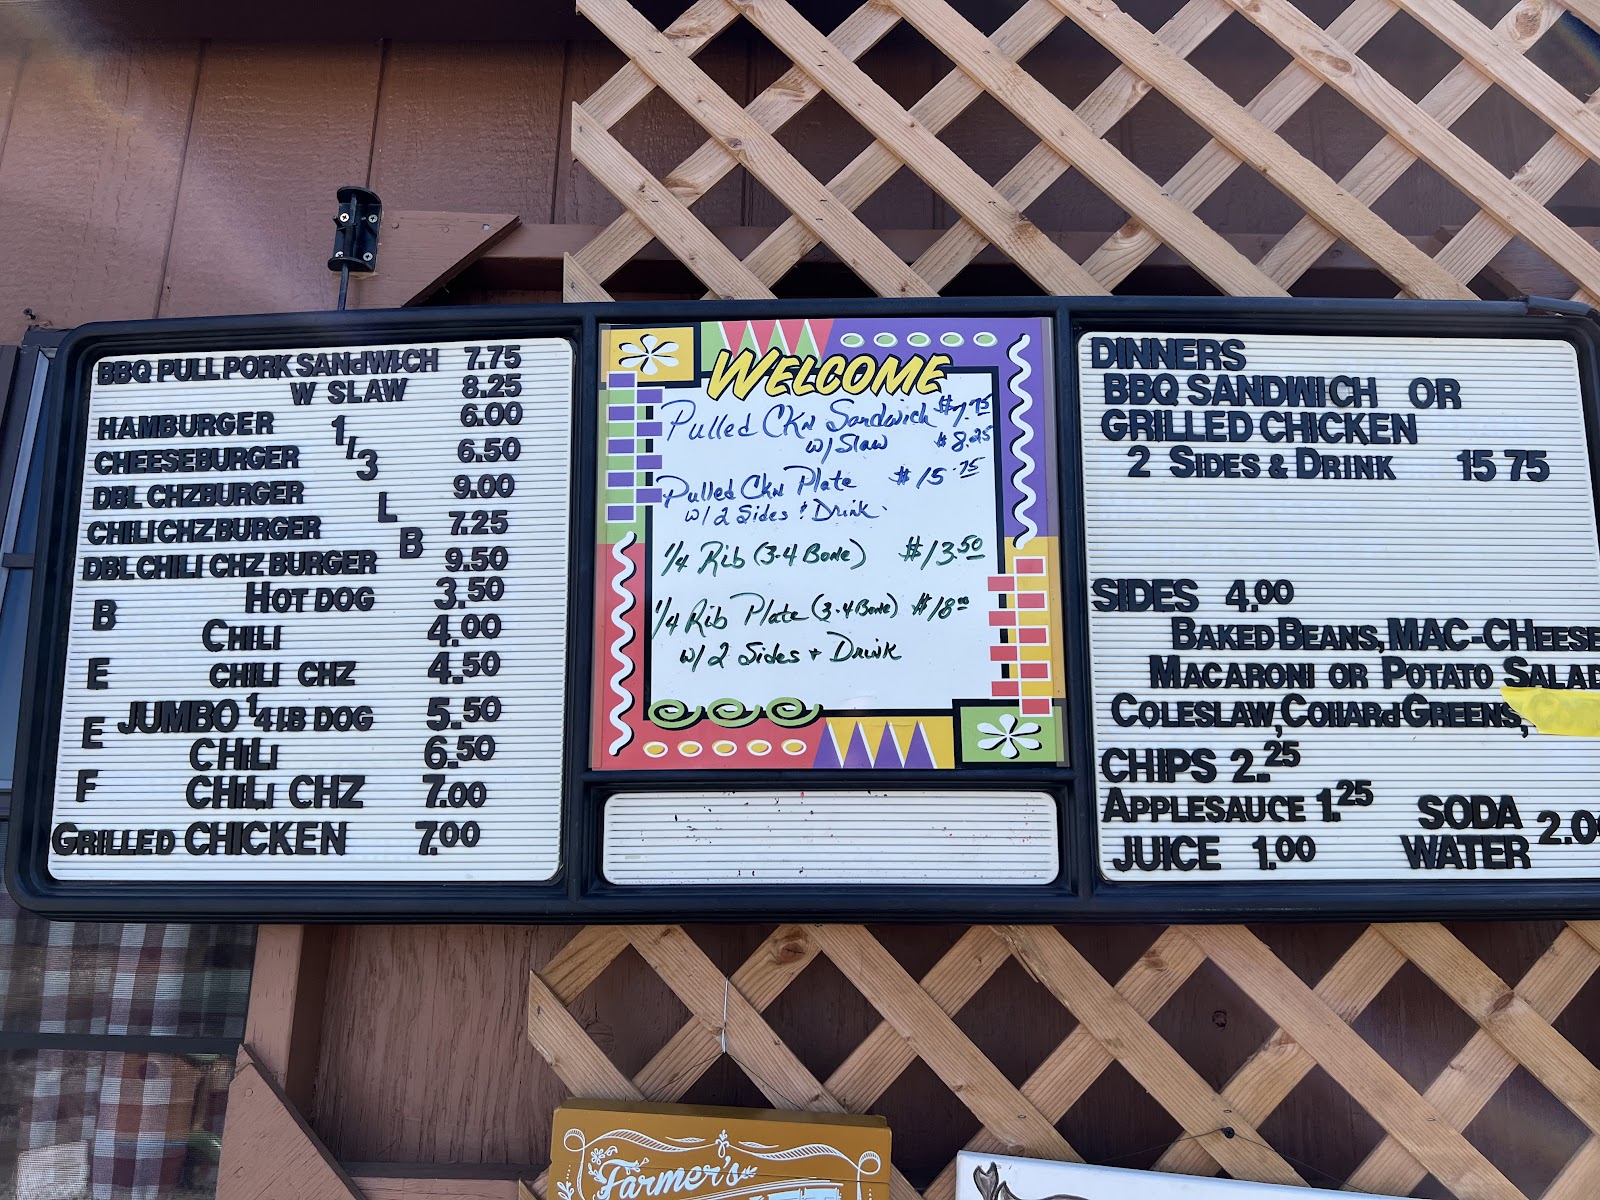 BBQ PULL PORK SANdWICH 7.75
W SLAW 8.25
HAMBURGER 6.00
CHEESEBURGER 6.50
DBL CHZBURGER 9.00
CHILI CHZ BURGER 7.25
DBL CHILI CHZ BURGER 9.50
1/3 LB BEEF
HOT DOG 3.50
CHILI 4.00
CHILI CHZ 4.50
JUMBO 1/4 LB DOG 5.50
CHILI 6.50
CHILI CHZ 7.00
GRILLED CHICKEN 7.00
WELCOME
Pulled CKN Sandwich $7.75
w/Slaw $8.25
Pulled CKN Plate $15.75
w/ 2 Sides & Drink.
1/4 Rib (3-4 Bone) $13.50
1/4 Rib Plate (3-4 Bone) $18.00
w/ 2 Sides + Drink
DINNERS
BBQ SANDWICH OR
GRILLED CHICKEN
2 SIDES & DRINK 15 75
SIDES 4.00
BAKED BEANS, MAC-CHEESE
MACARONI OR POTATO SALAD
COLESLAW, COllARd GREENS,
CHIPS 2.25
APPLESAUCE 1.25
JUICE 1.00
SODA
WATER 2.0
Farmer's